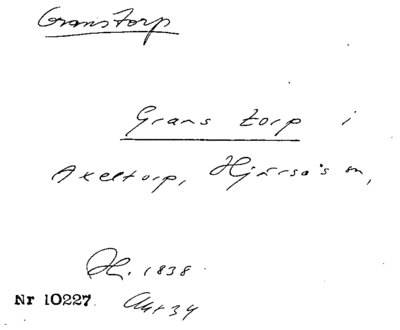 Granstorp
Grans torp i
Axeltorp, Hjärsås sn,
H. 1838.
Nr 10227. Akt 34